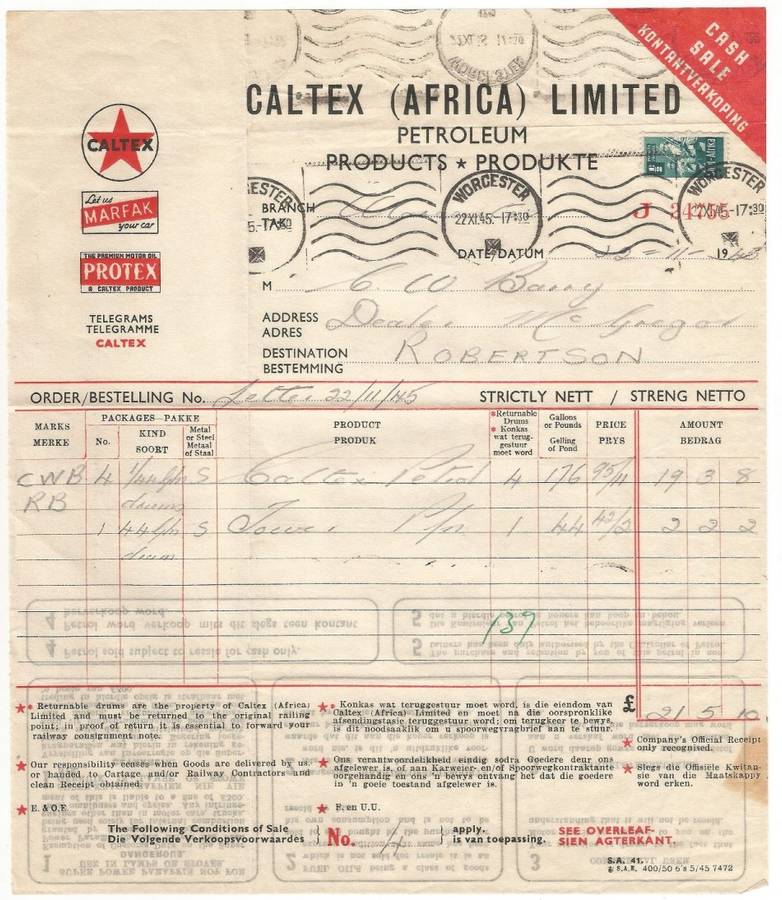 CASH
SALE
KONTANTVERKOPING
CALTEX (AFRICA) LIMITED
PETROLEUM
PRODUCTS ★ PRODUKTE
CALTEX
Let us
MARFAK
your car
THE PREMIUM MOTOR OIL
PROTEX
A CALTEX PRODUCT
TELEGRAMS
TELEGRAMME
CALTEX
WORCESTER
22XI.45.-17:30
BRANCH
TAK
J
DATE/DATUM 22-11-1945
M C. W Barry
ADDRESS
ADRES
Dealer McGregor
DESTINATION
BESTEMMING
ROBERTSON
ORDER/BESTELLING No. Letter 22/11/45 STRICTLY NETT / STRENG NETTO
MARKS
MERKE
PACKAGES-PAKKE
No.
KIND
SOORT
Metal
or Steel
Metaal
of Staal
PRODUCT
PRODUK
*Returnable
Drums
*Konkas
wat terug-
gestuur
moet word
Gallons
or Pounds
Gelling
of Pond
PRICE
PRYS
AMOUNT
BEDRAG
CWB 4 1/44 S Caltex Petrol 4 176 95/11 19 3 8
RB drums
1 44 S Power Pfn 1 44 42/2 2 2 2
drum
139
£ 21 5 10
★* Returnable drums are the property of Caltex (Africa)
Limited and must be returned to the original railing
point; in proof of return it is essential to forward your
railway consignment note.
★ Our responsibility ceases when Goods are delivered by us
or handed to Cartage and/or Railway Contractors and
clean Receipt obtained.
★ E. & O.E.
★* Konkas wat teruggestuur moet word, is die eiendom van
Caltex (Africa) Limited en moet na die oorspronklike
afsendingstasie teruggestuur word; om terugkeer te bewys,
is dit noodsaaklik om u spoorwegvragbrief aan te stuur.
★ Ons verantwoordelikheid eindig sodra Goedere deur ons
afgelewer is, of aan Karweier- en/of Spoorwegkontraktante
oorgehandig en ons 'n bewys ontvang het dat die goedere
in 'n goeie toestand afgelewer is.
★ F. en U.U.
★ Company's Official Receipt
only recognised.
★ Slegs die Offisiële Kwitan-
sie van die Maatskappy
word erken.
The Following Conditions of Sale
Die Volgende Verkoopsvoorwaardes
No. 4
apply.
is van toepassing.
SEE OVERLEAF-
SIEN AGTERKANT.
S.A. 41.
S.A.R. 400/50 6's 5/45 7472